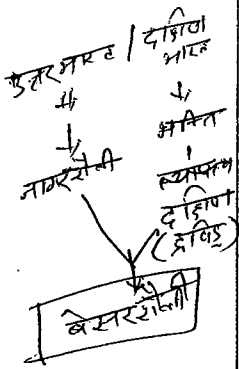 उत्तर भारत / दक्षिण
भारत
नागर शैली
भक्ति
स्थापत्य
दक्षिण
(द्रविड़)
बेसर शैली